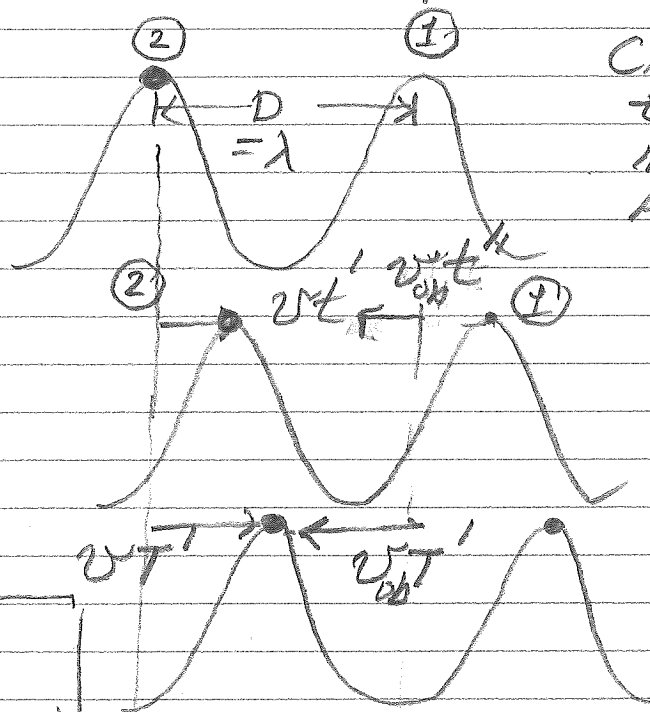 ② ①
D
= λ
② vt' v_ob t' ①
vT' v_ob T'